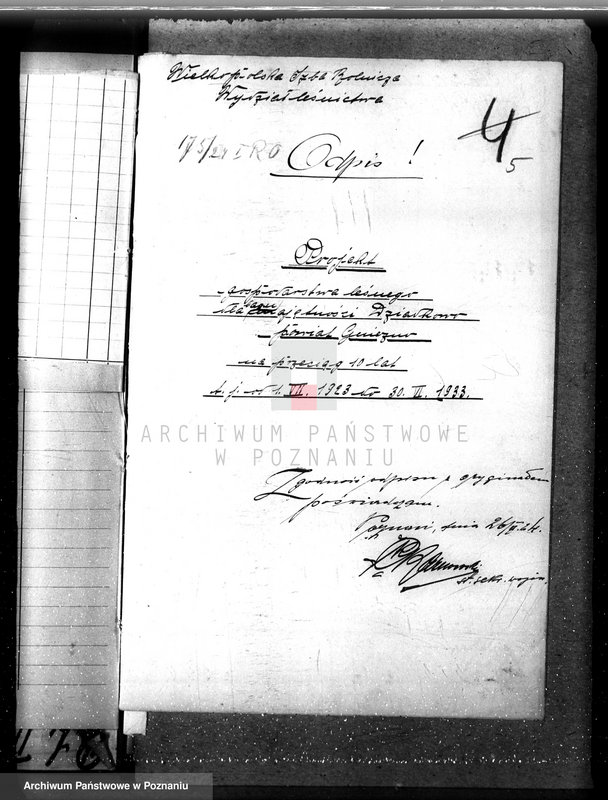 Wielkopolska Izba Rolnicza
Wydział leśnictwa
4
5
Odpis!
Projekt
gospodarstwa leśnego
dla majętności Działkowo
powiat Gniezno
na przeciąg 10 lat
t. j. od 1. VII. 1923 do 30. VI. 1933.
ARCHIWUM PAŃSTWOWE
W POZNANIU
Zgodność odpisu z oryginałem
poświadczam.
Poznań, dnia 26/ 24.
st. sekr. wojew.
Archiwum Państwowe w Poznaniu